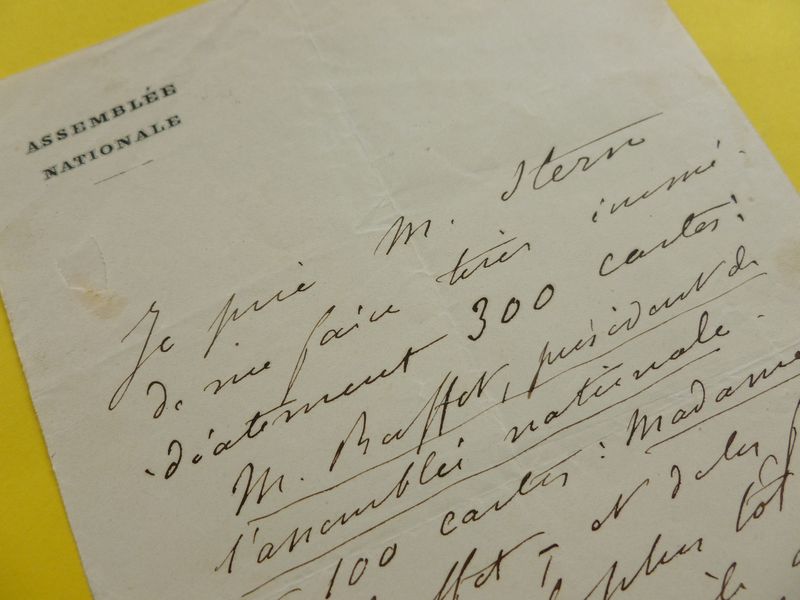 ASSEMBLÉE
NATIONALE
Je prie M. Stern
de me faire tirer immé-
-diatement 300 cartes:
M. Buffet, président de
l'assemblée nationale.
100 cartes: Madame
Buffet, et de les
plus tôt